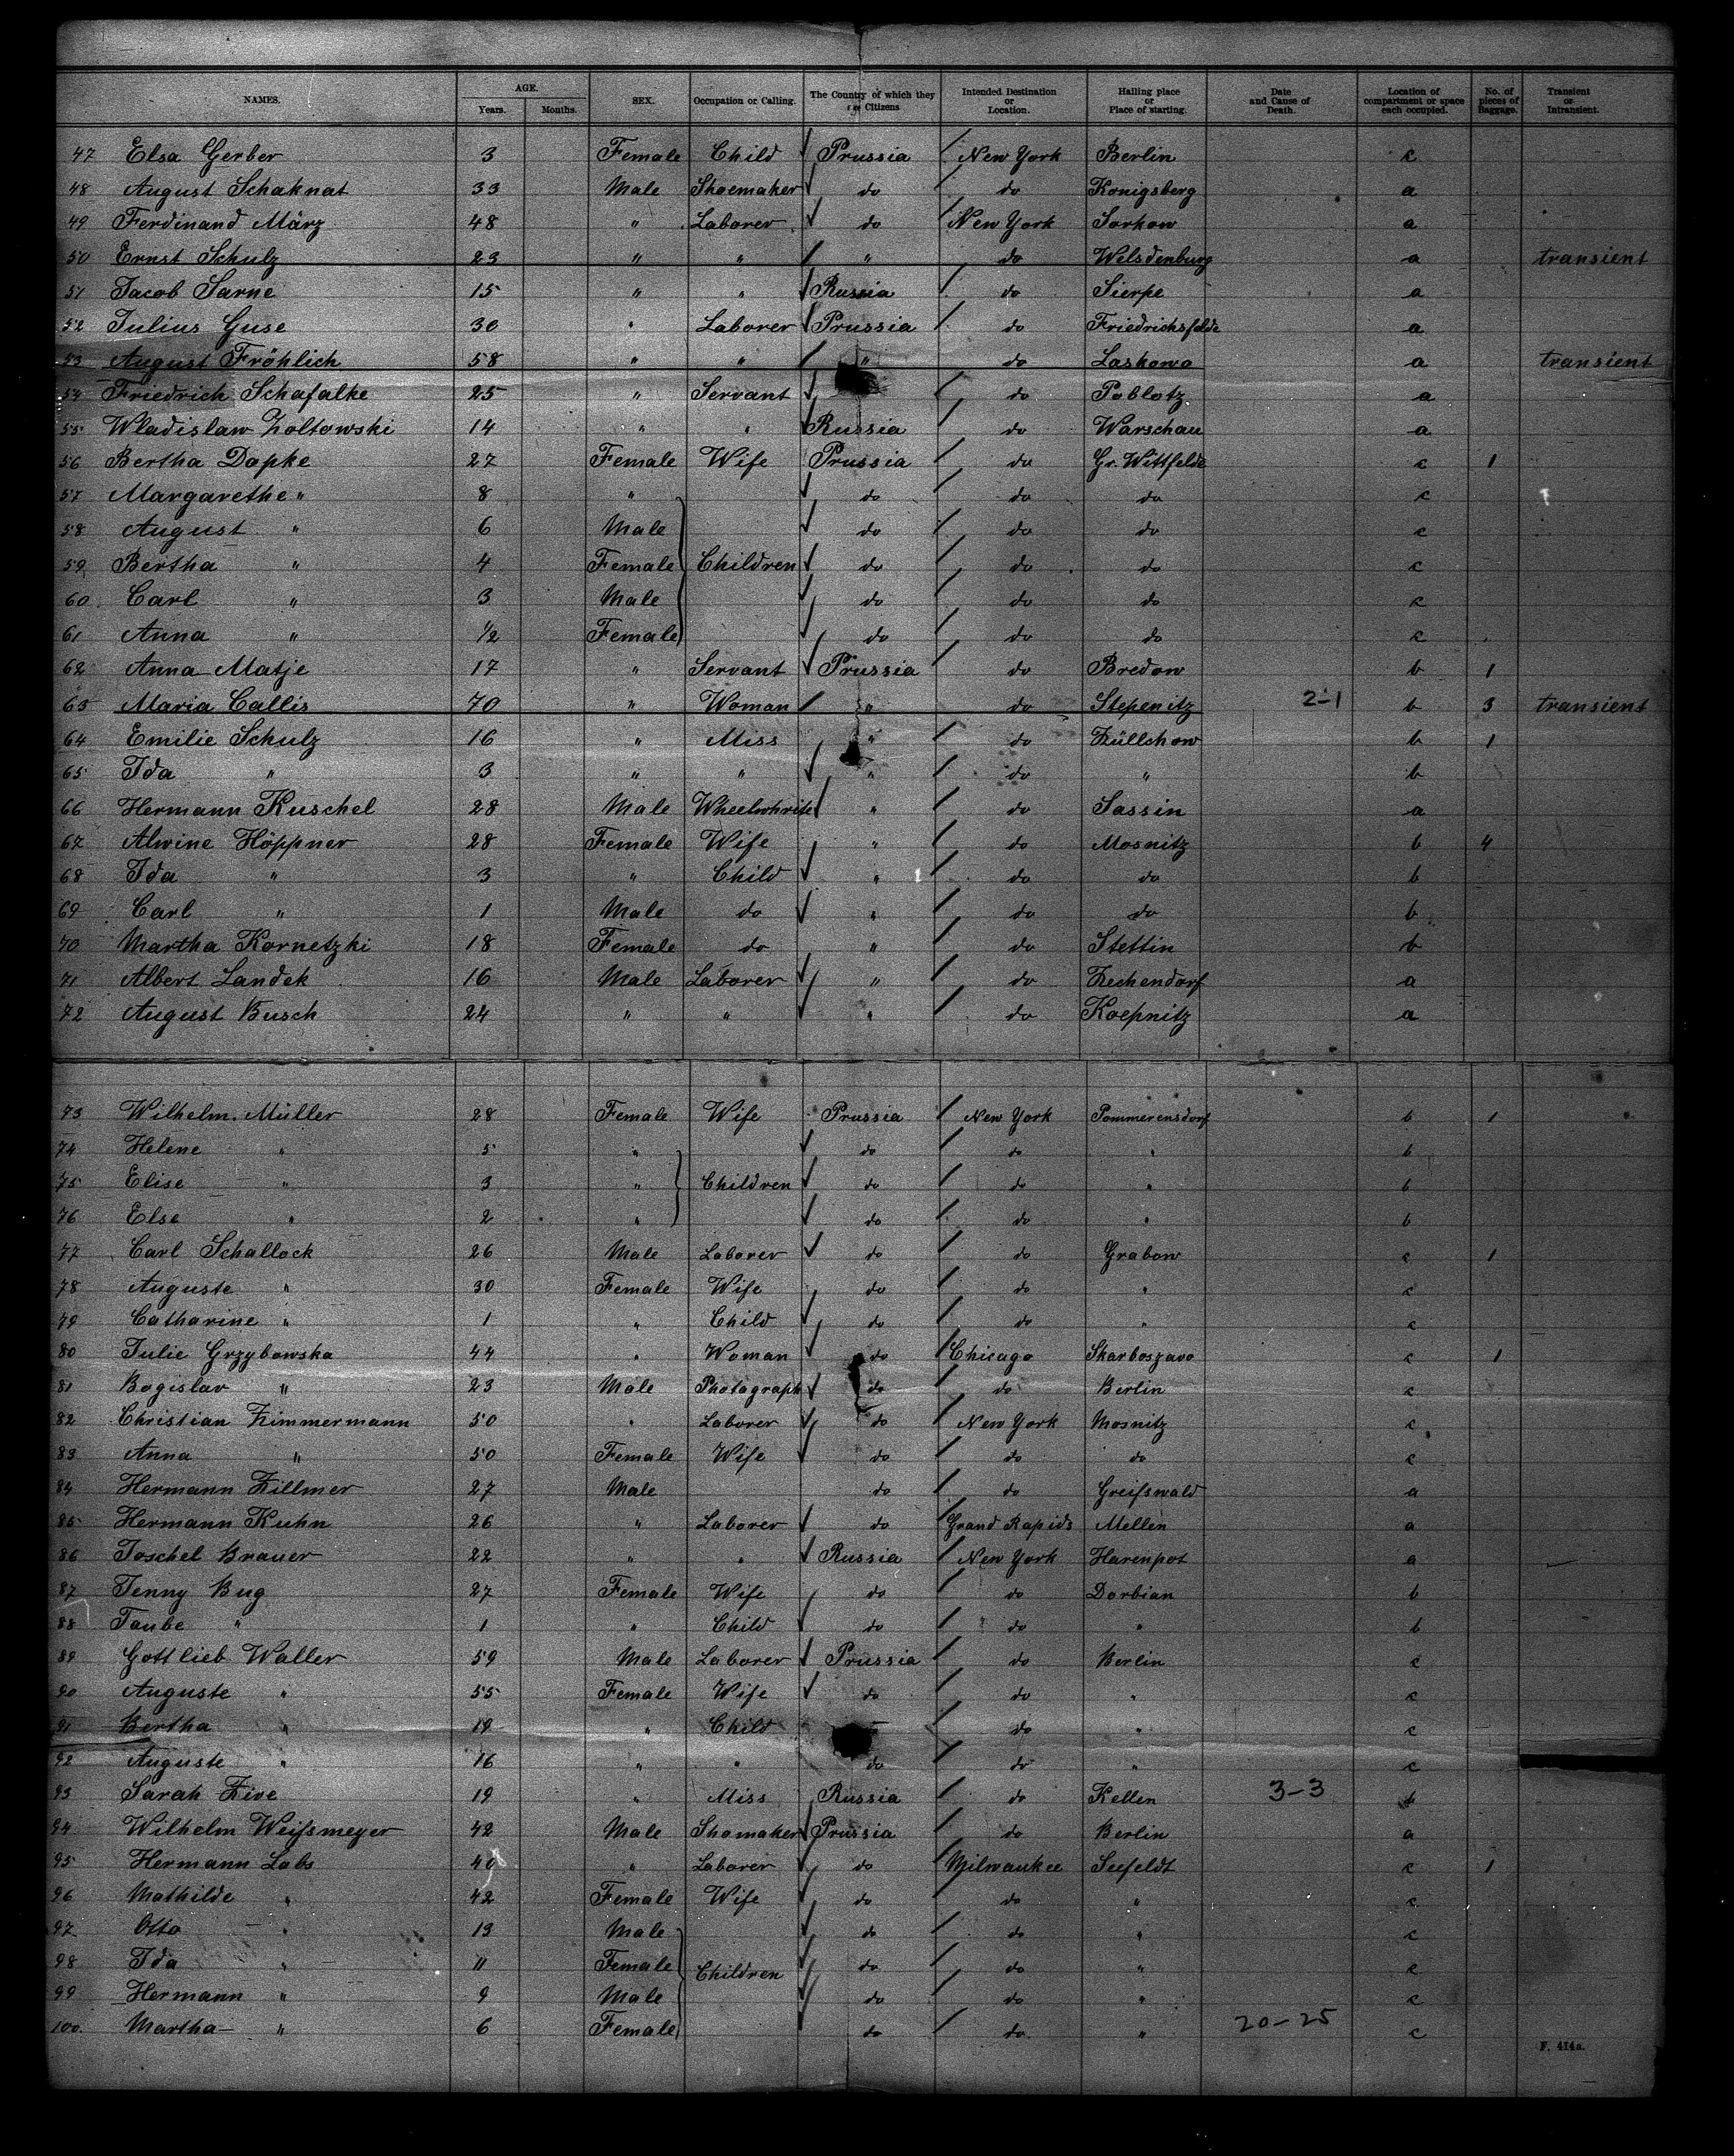 NAMES. AGE. SEX. Occupation or Calling. The Country of which they are Citizens Intended Destination or Location. Hailing place or Place of starting. Date and Cause of Death. Location of compartment or space each occupied. No. of pieces of Baggage. Transient or Intransient.
Years. Months.
47 Elsa Gerber 3 Female Child Prussia New York Berlin c
48 August Schaknat 33 Male Shoemaker do do Konigsberg a
49 Ferdinand März 48 " Laborer do New York Sorkow a
50 Ernst Schulz 23 " " " do Welsdenburg a transient
51 Jacob Sarne 15 " " Russia do Sierpe a
52 Julius Guse 30 " Laborer Prussia do Friedrichsfelde a
53 August Fröhlich 58 " " " do Laskowo a transient
54 Friedrich Schafalke 25 " Servant do Poblotz a
55 Wladislaw Zoltowski 14 " " Russia do Warschau a
56 Bertha Dapke 27 Female Wife Prussia do Gr. Wittfelde c 1
57 Margarethe " 8 " do do do c
58 August " 6 Male do do do c
59 Bertha " 4 Female Children do do do c
60 Carl " 3 Male do do do c
61 Anna " 1/2 Female do do do c
62 Anna Matje 17 " Servant Prussia do Bredow b 1
63 Maria Callis 70 " Woman " do Stepenitz 2-1 b 3 transient
64 Emilie Schulz 16 " Miss " do Züllchow b 1
65 Ida " 3 " " " do " b
66 Hermann Kuschel 28 Male Wheelwhrite " do Sassin a
67 Alwine Höppner 28 Female Wife " do Mosnitz b 4
68 Ida " 3 " Child " do do b
69 Carl " 1 Male do " do do b
70 Martha Kornetzki 18 Female do " do Stettin b
71 Albert Landek 16 Male Laborer " do Zechendorf a
72 August Busch 24 " " " do Koepnitz a
73 Wilhelm. Müller 28 Female Wife Prussia New York Pommerensdorf b 1
74 Helene " 5 " do do " b
75 Elise " 3 " Children do do " b
76 Else " 2 " do do " b
77 Carl Schallock 26 Male Laborer do do Grabow c 1
78 Auguste " 30 Female Wife do do " c
79 Catharine " 1 " Child do do " c
80 Julie Grzybowska 44 " Woman do Chicago Skarboszavo c 1
81 Bogislav " 23 Male Photograph do do Berlin c
82 Christian Zimmermann 50 " Laborer do New York Mosnitz c
83 Anna " 50 Female Wife do do do c
84 Hermann Zillmer 27 Male do do Greifswald a
85 Hermann Kuhn 26 " Laborer do Grand Rapids Mellen a
86 Joschel Brauer 22 " " Russia New York Harenpot a
87 Jenny Bug 27 Female Wife do do Dorbian b
88 Taube " 1 " Child do do " b
89 Gottlieb Waller 59 Male Laborer Prussia do Berlin c
90 Auguste " 55 Female Wife do do " c
91 Bertha " 19 " Child do " c
92 Auguste " 16 " " do do " c
93 Sarah Zive 19 " Miss Russia do Kellen 3-3 b
94 Wilhelm Weifsmeyer 42 Male Shomaker Prussia do Berlin a
95 Hermann Labs 40 " Laborer do Milwaukee Seefeldt c 1
96 Mathilde " 42 Female Wife do do " c
97 Otto " 13 Male do do " c
98 Ida " 11 Female Children do do " c
99 Hermann " 9 Male do do " c
100. Martha " 6 Female do do " 20-25 c
F. 414a.